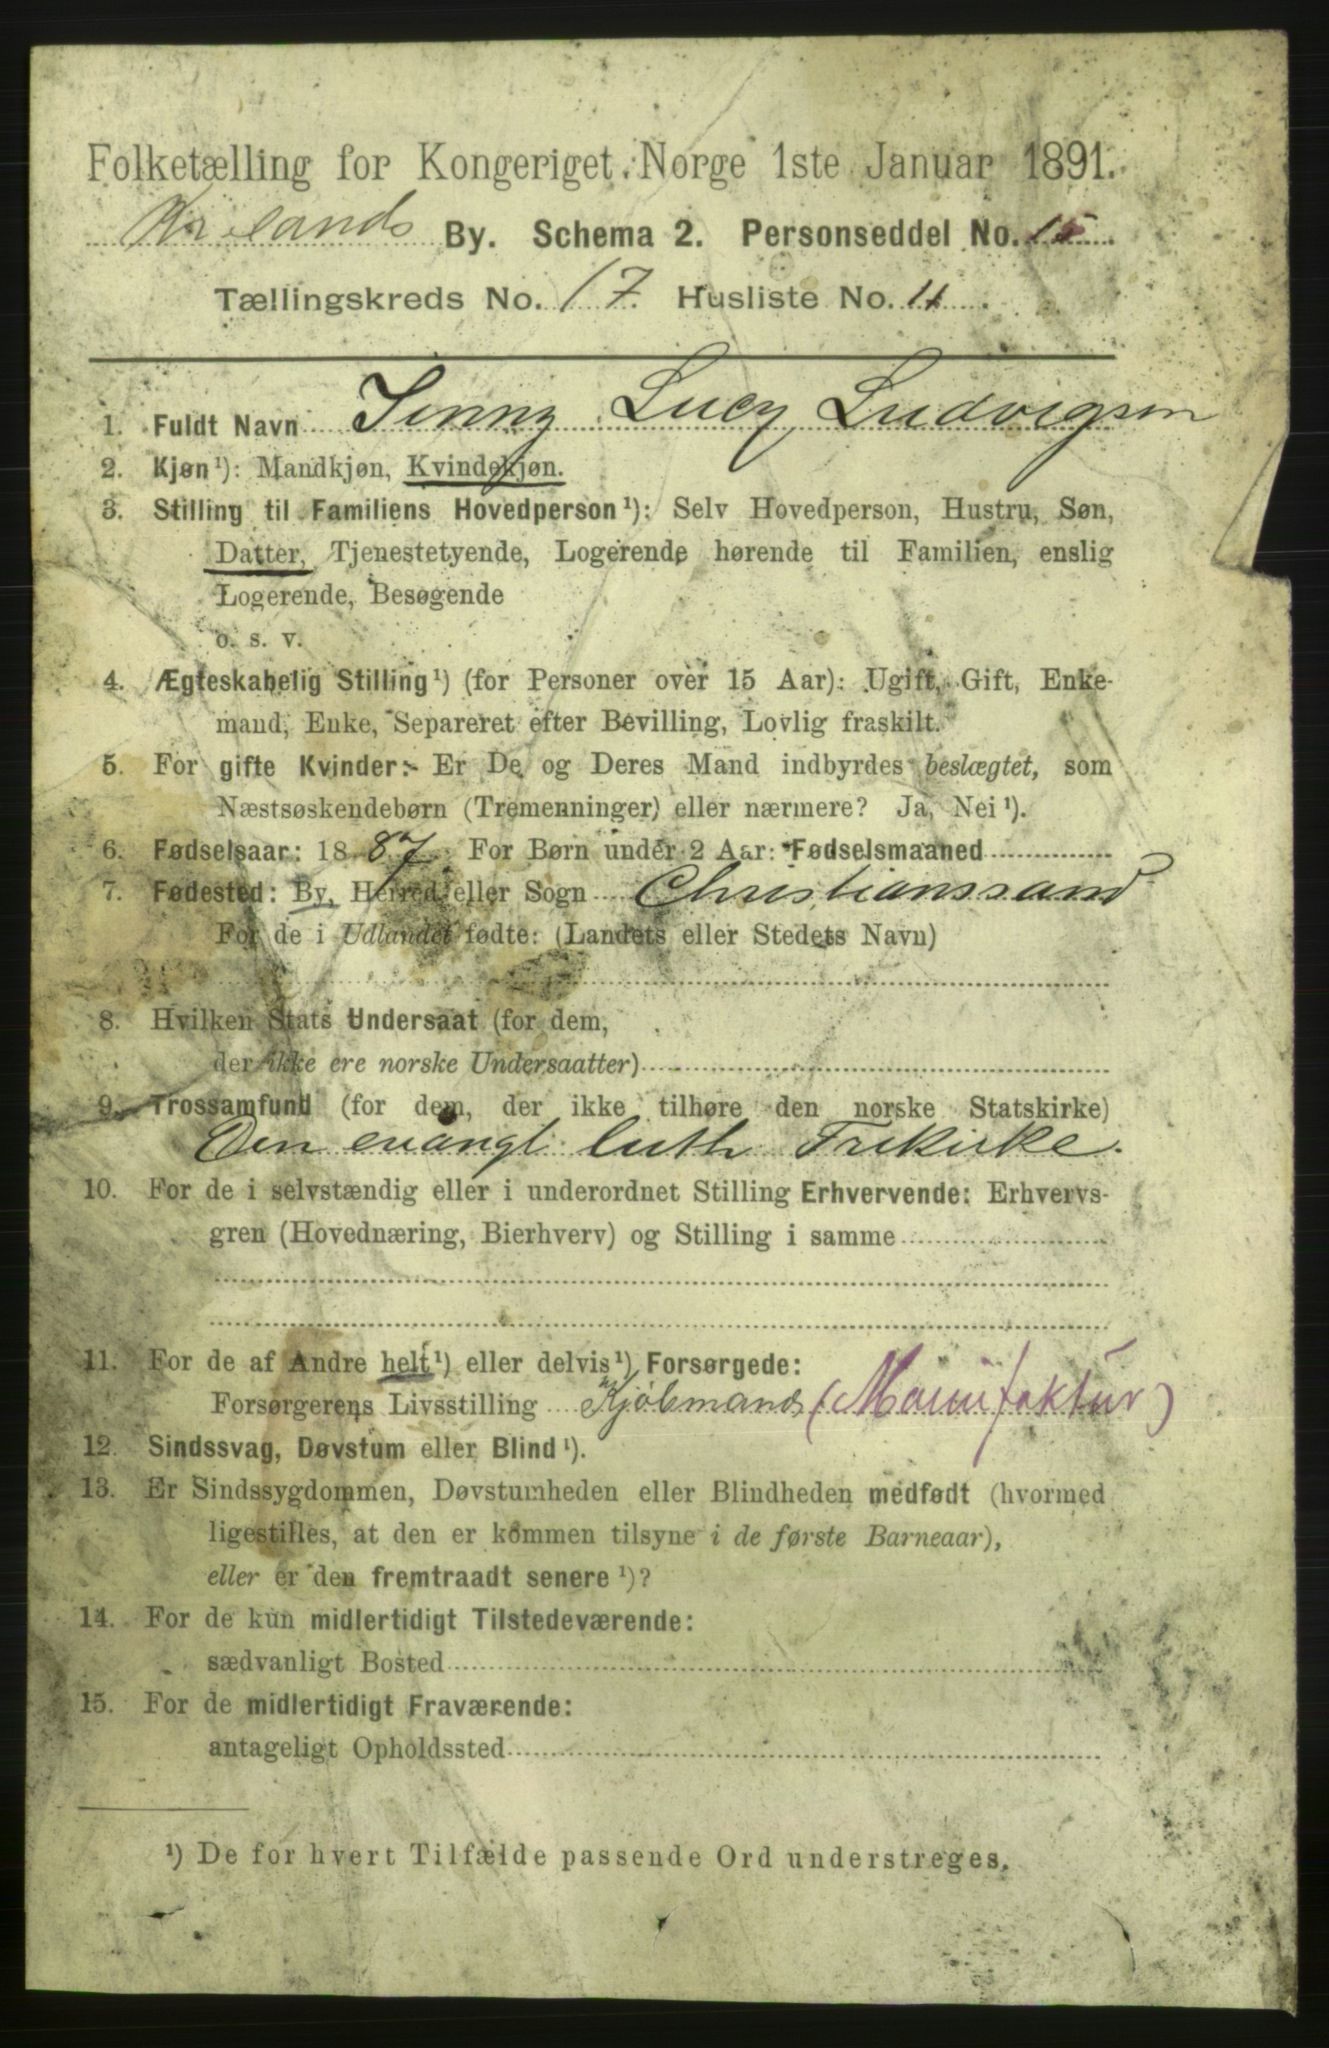 Folketælling for Kongeriget Norge 1ste Januar 1891.
By. Schema 2. Personseddel No. 15.
Tællingskreds No. 17. Husliste No. 11.
1. Fuldt Navn Jenny Lucy Ludvigsen
2. Kjøn ¹): Mandkjøn, Kvindekjøn.
3. Stilling til Familiens Hovedperson ¹): Selv Hovedperson, Hustru, Søn,
Datter, Tjenestetyende, Logerende hørende til Familien, enslig
Logerende, Besøgende
o. s. v.
4. Ægteskabelig Stilling ¹) (for Personer over 15 Aar): Ugift, Gift, Enke-
mand, Enke, Separeret efter Bevilling, Lovlig fraskilt.
5. For gifte Kvinder: Er De og Deres Mand indbyrdes beslægtet, som
Næstsøskendebørn (Tremenninger) eller nærmere? Ja, Nei ¹).
6. Fødselsaar: 1887. For Børn under 2 Aar: Fødselsmaaned
7. Fødested: By, Herred eller Sogn Christianssand
For de i Udlandet fødte: (Landets eller Stedets Navn)
8. Hvilken Stats Undersaat (for dem,
der ikke ere norske Undersaatter)
9. Trossamfund (for dem, der ikke tilhøre den norske Statskirke)
Den evangl. luth Frikirke.
10. For de i selvstændig eller i underordnet Stilling Erhvervende: Erhvervs-
gren (Hovednæring, Bierhverv) og Stilling i samme
11. For de af Andre helt ¹) eller delvis ¹) Forsørgede:
Forsørgerens Livsstilling Kjøbmand (Manufaktur)
12. Sindssvag, Døvstum eller Blind ¹).
13. Er Sindssygdommen, Døvstumheden eller Blindheden medfødt (hvormed
ligestilles, at den er kommen tilsyne i de første Barneaar),
eller er den fremtraadt senere ¹)?
14. For de kun midlertidigt Tilstedeværende:
sædvanligt Bosted
15. For de midlertidigt Fraværende:
antageligt Opholdssted
¹) De for hvert Tilfælde passende Ord understreges.